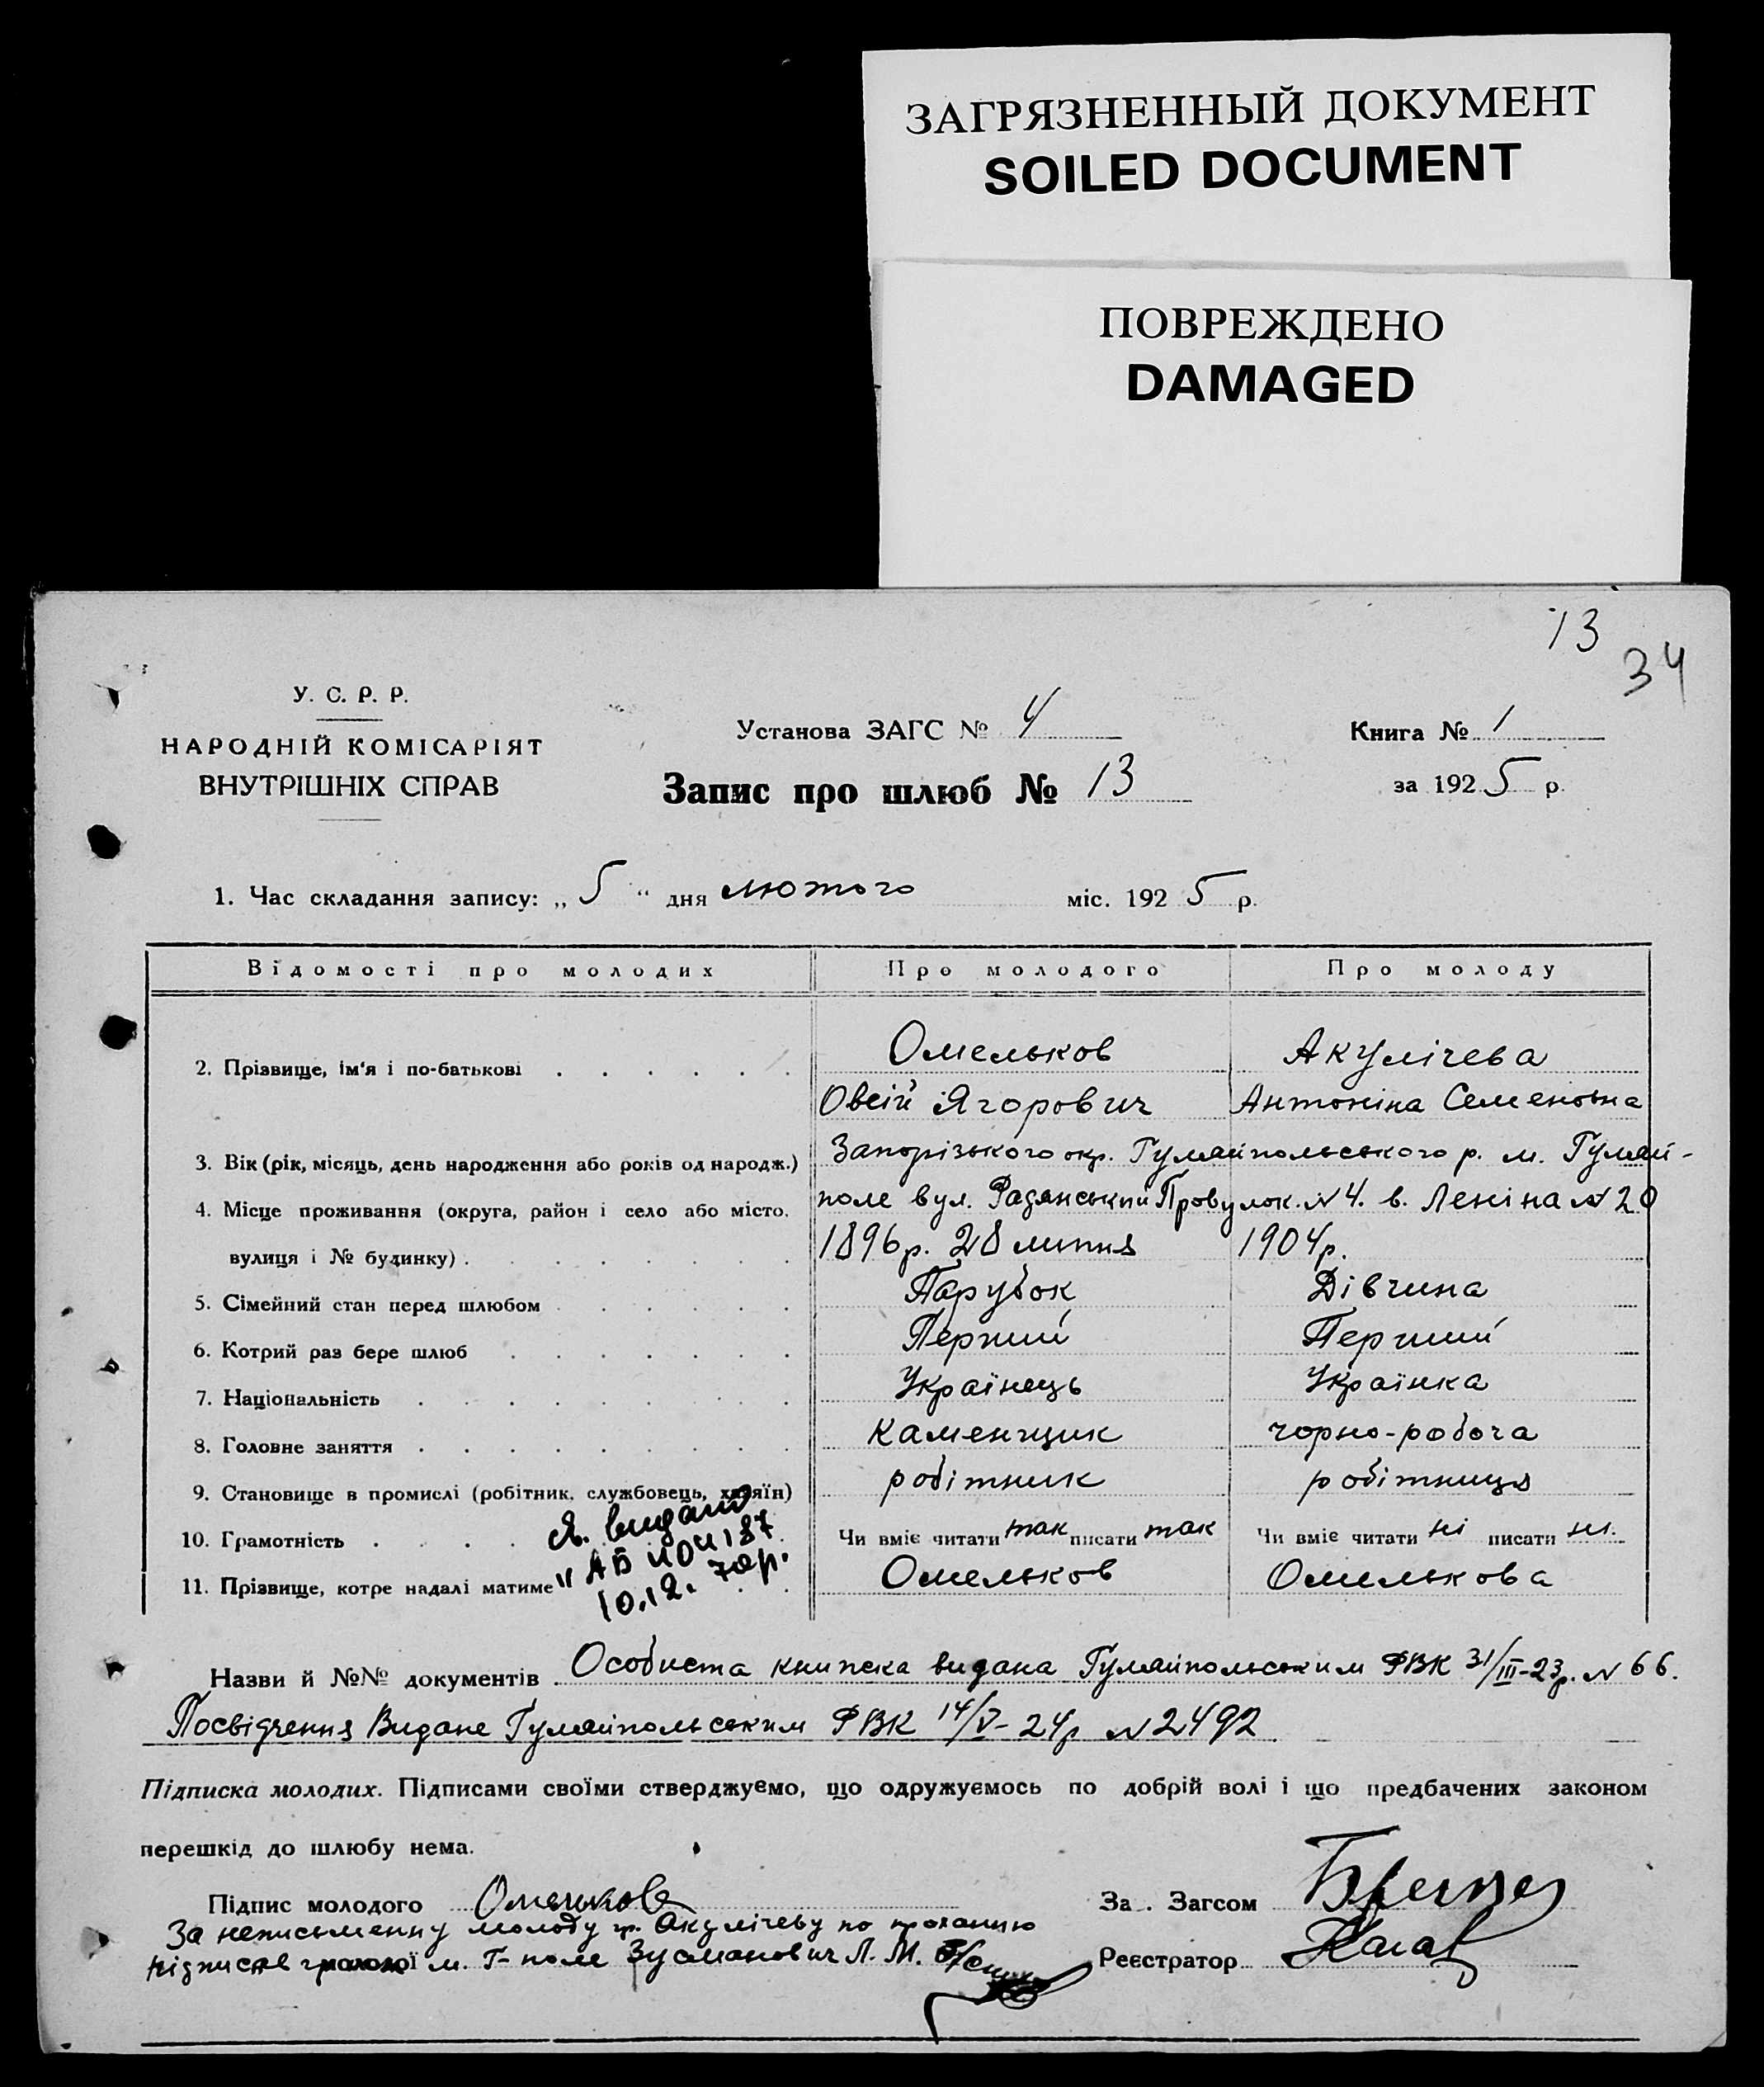 ЗАГРЯЗНЕННЫЙ ДОКУМЕНТ
SOILED DOCUMENT
ПОВРЕЖДЕНО
DAMAGED
13
34
У. С. Р. Р.
НАРОДНІЙ КОМІСАРІЯТ
ВНУТРІШНІХ СПРАВ
Установа ЗАГС № 4
Запис про шлюб № 13
Книга № 1
за 1925 р.
1. Час складання запису: „ 5 “ дня лютого міс. 1925 р.
Відомості про молодих Про молодого Про молоду
2. Прізвище, ім'я і по-батькові Омельков Акулічева
Овсій Ягорович Антоніна Семеновна
3. Вік (рік, місяць, день народження або років од народж.) Запорізького окр. Гуляйпольського р. м. Гуляй-
4. Місце проживання (округа, район і село або місто, поле вул. Радянський Провулок. N 4. в. Леніна N 20
вулиця і № будинку) 1896 р. 28 липня 1904 р.
5. Сімейний стан перед шлюбом Парубок Дівчина
6. Котрий раз бере шлюб Перший Перший
7. Національність Українець Українка
8. Головне заняття каменщик чорно-робоча
9. Становище в промислі (робітник, службовець, хазяїн) робітник робітниця
10. Грамотність Чи вміє читати так писати так Чи вміє читати ні писати ні.
11. Прізвище, котре надалі матиме Омельков Омелькова
10.12.
Назви й №№ документів Особиста книжка видана Гуляйпольським РВК 31/III-23р. N 66.
Посвідчення Видане Гуляйпольським РВК 14/V-24р N 2492
Підписка молодих. Підписами своїми стверджуємо, що одружуємось по добрій волі і що предбачених законом
перешкід до шлюбу нема.
Підпис молодого Омельков За . Загсом
За неписьменну молоду гр. Акулічеву по проханню
підписав м. Г-поле Зусманович Л. М. Реєстратор